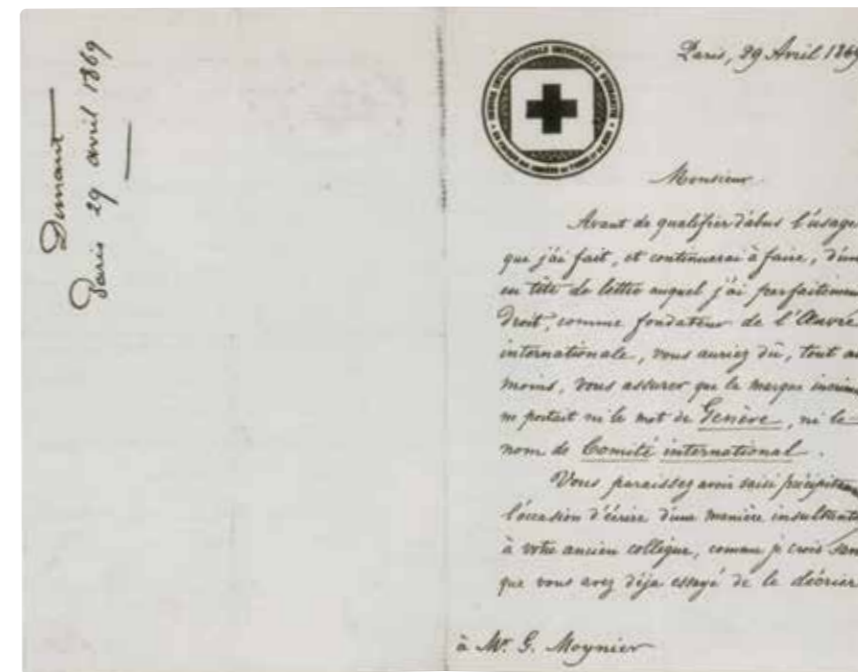 Dunant
Paris 29 avril 1869
ŒUVRE INTERNATIONALE UNIVERSELLE D'HUMANITÉ
EN FAVEUR DES ARMÉES DE TERRE ET DE MER
Paris, 29 Avril 1869
Monsieur
Avant de qualifier d'abus l'usage
que j'ai fait, et continuerai à faire, d'un
en tête de lettre auquel j'ai parfaitement
droit, comme fondateur de l'Œuvre
internationale, vous auriez dû, tout au
moins, vous assurer que la marque
ne portait ni le mot de Genève, ni le
nom de Comité international.
Vous paraissez avoir saisi
l'occasion d'écrire d'une manière insultante
à votre ancien collègue, comme je crois
que vous avez déja essayé de le décrier
à Mr. G. Moynier